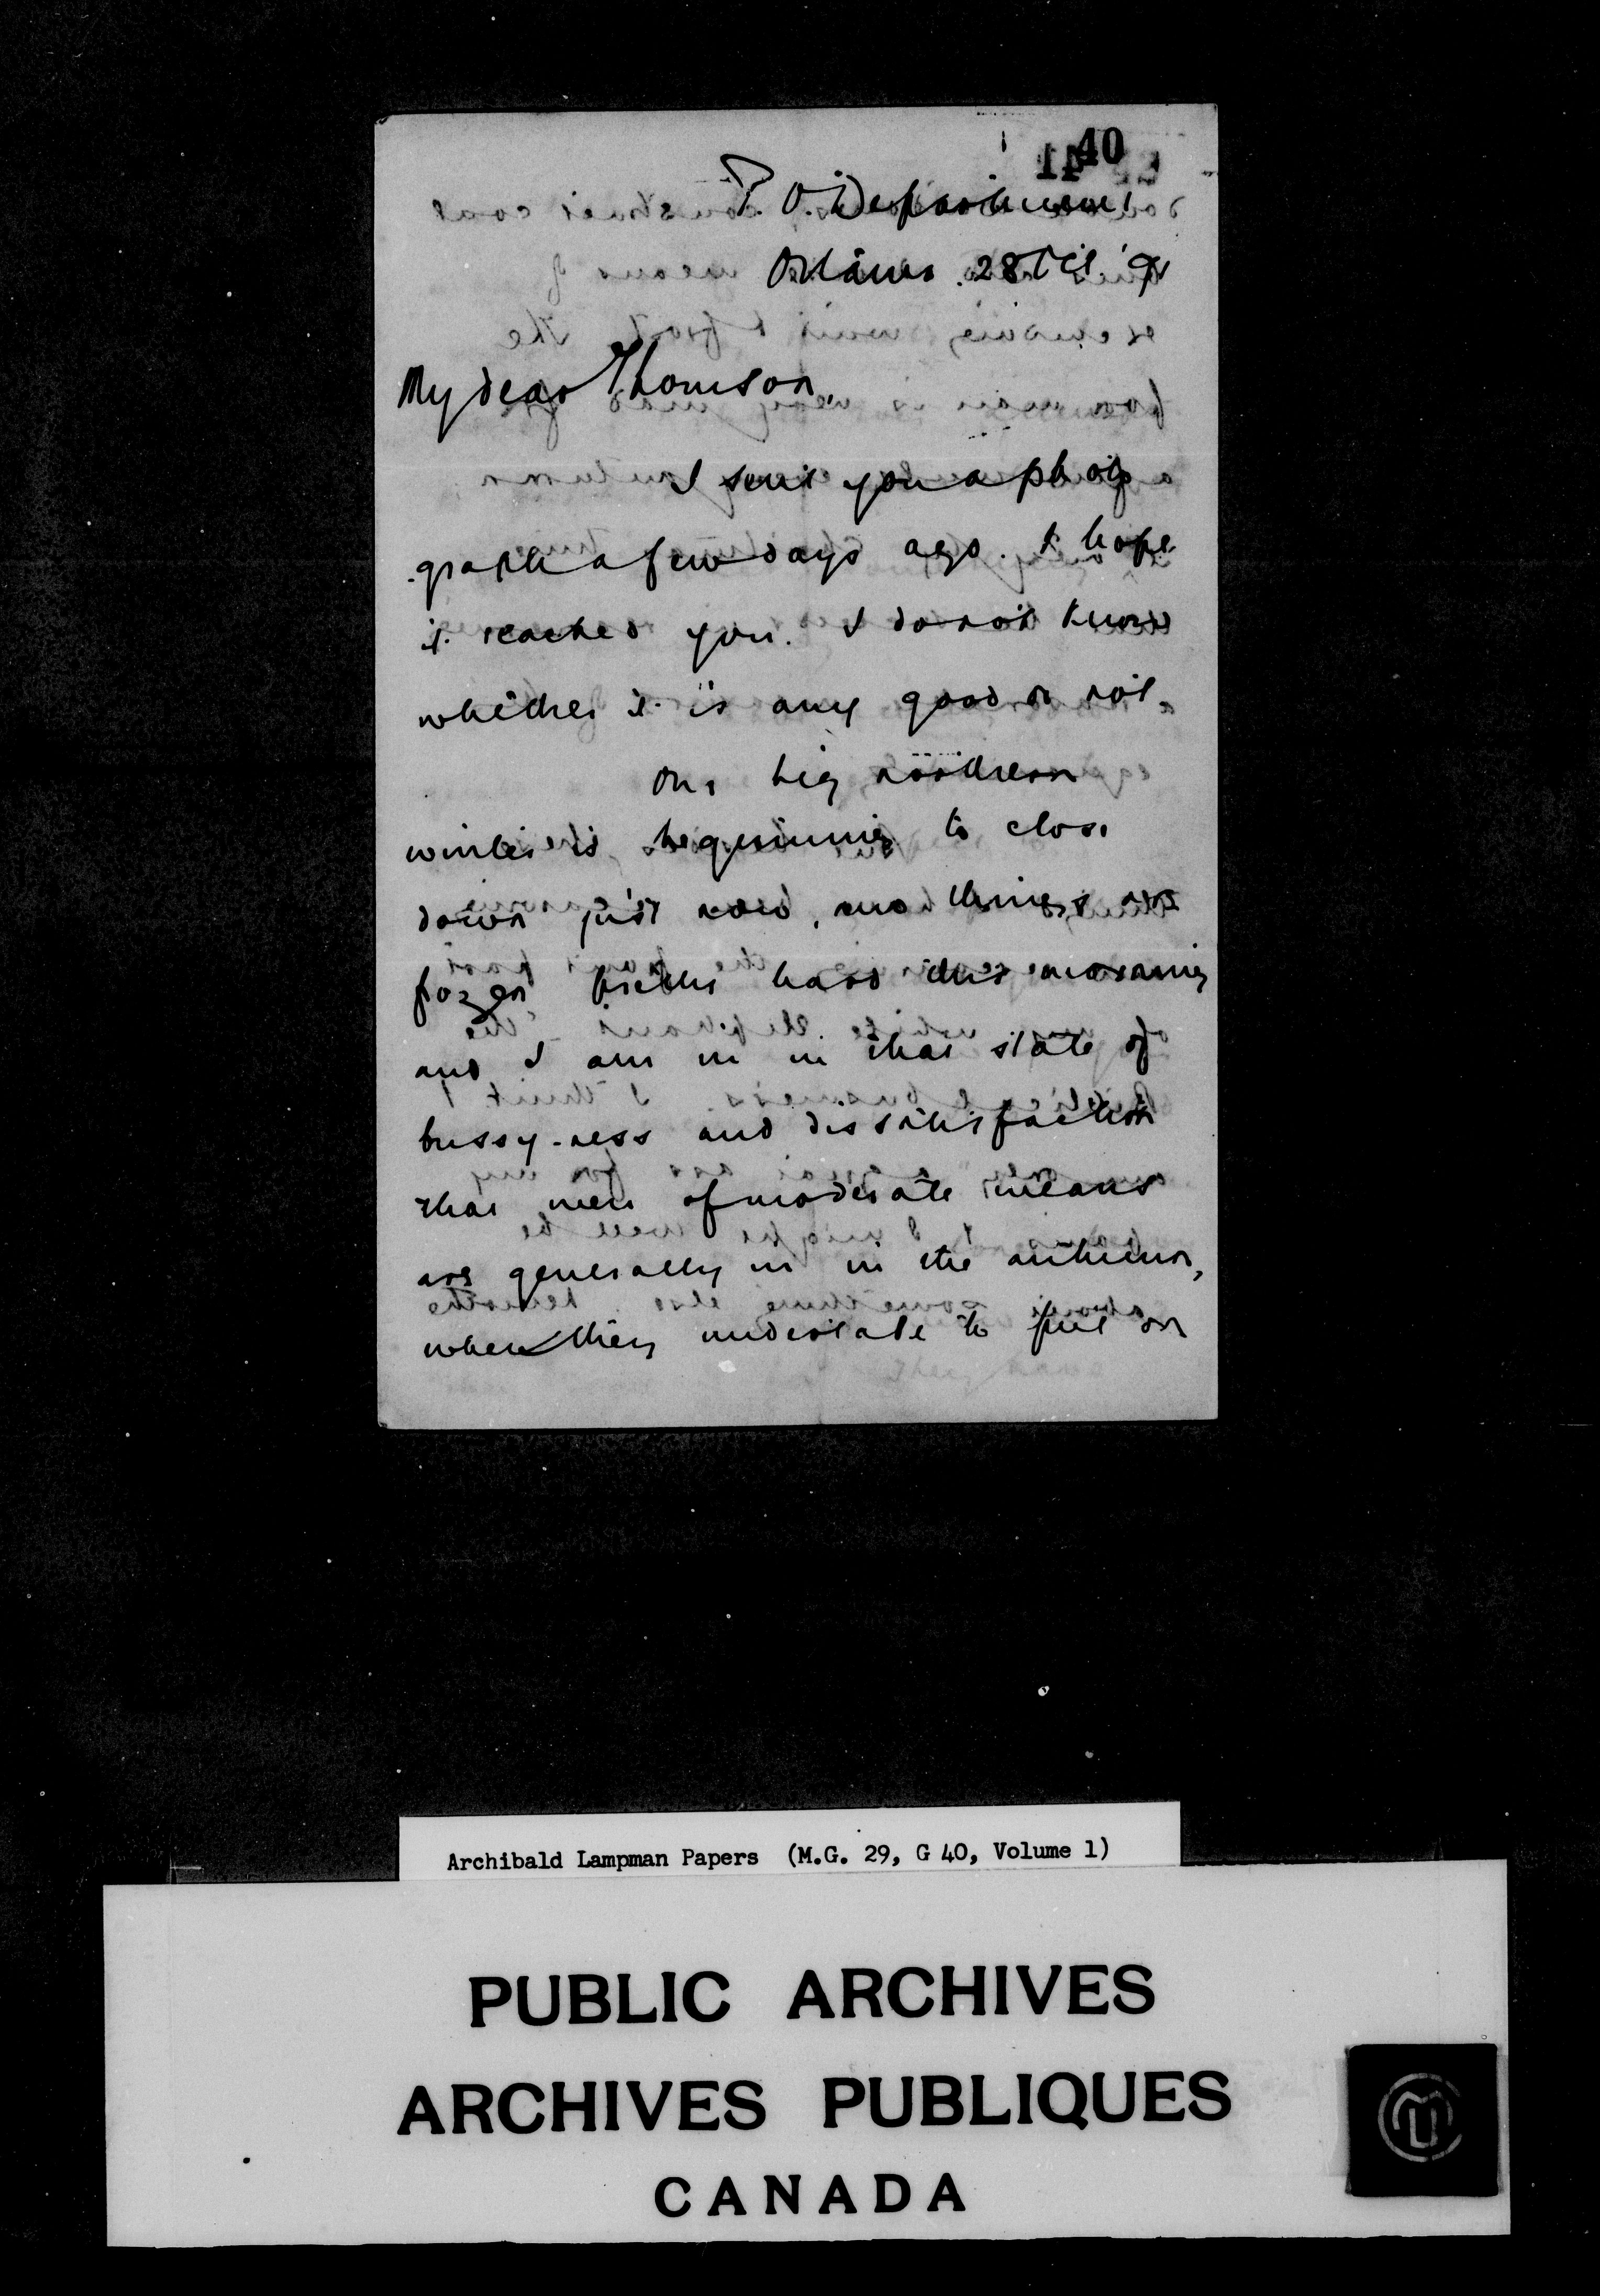 40
14
P. O. Department
Ottawa. 28 Oct '91
My dear Thomson,
I sent you a photo
graph a few days ago. I hope
it reached you. I do not know
whether it is any good or not.
Our big northern
winter is beginning to close
down just now, and things are
frozen pretty hard this morning
and I am in in that state of
bussy-ness and dissatisfaction
that men of moderate means
are generally in in the autumn,
when they undertake to put on
Archibald Lampman Papers (M.G. 29, G 40, Volume 1)
PUBLIC ARCHIVES
ARCHIVES PUBLIQUES
CANADA